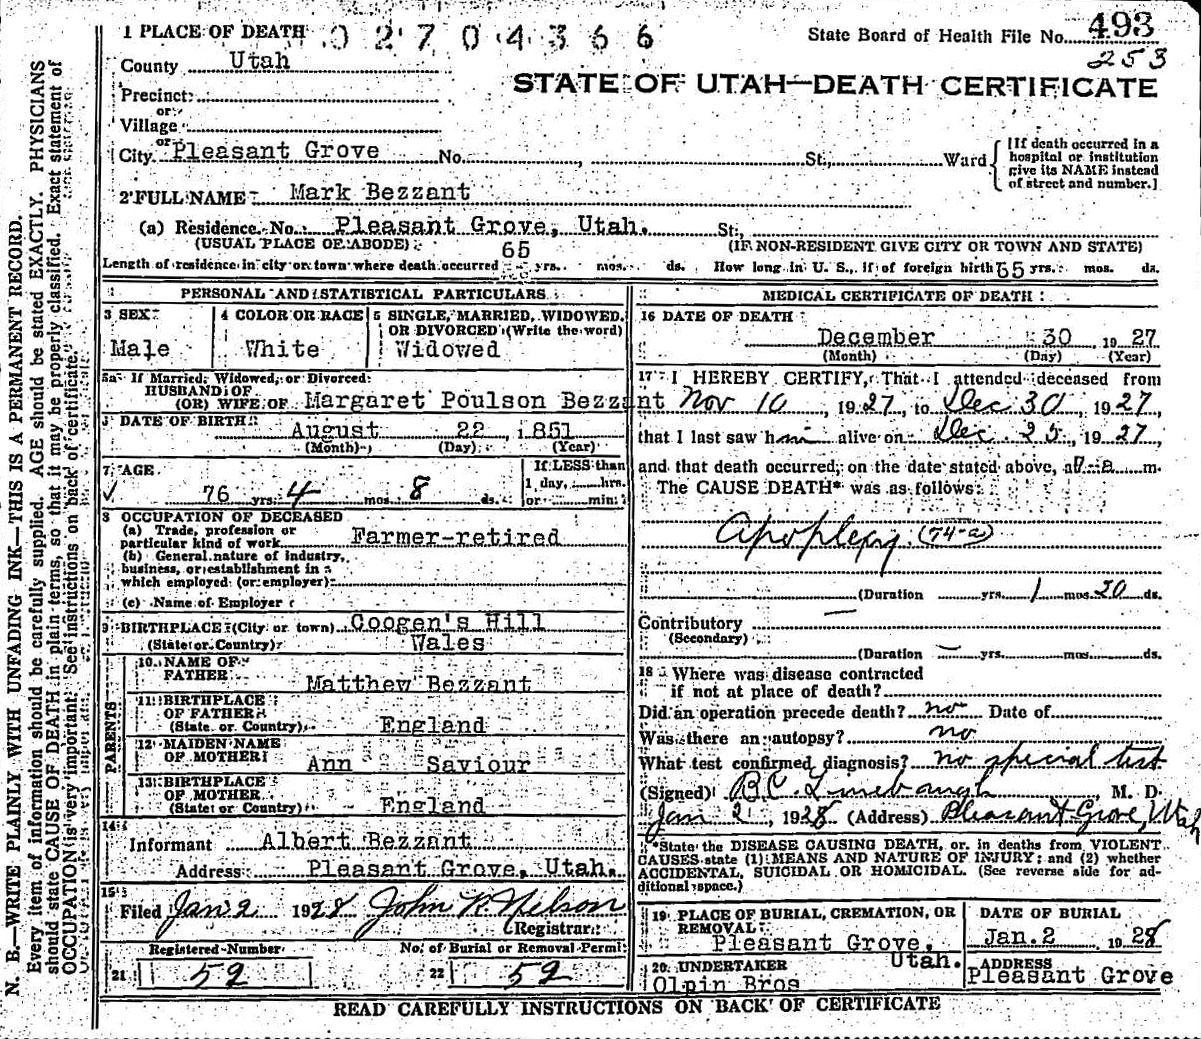 1 PLACE OF DEATH 02704366
State Board of Health File No. 493
253
County Utah
STATE OF UTAH—DEATH CERTIFICATE
Precinct
or
Village
or
City Pleasant Grove No. , St., Ward
[If death occurred in a hospital or institution give its NAME instead of street and number.]
2 FULL NAME Mark Bezzant
(a) Residence. No. Pleasant Grove, Utah. St.,
(USUAL PLACE OF ABODE) (IF NON-RESIDENT GIVE CITY OR TOWN AND STATE)
Length of residence in city or town where death occurred 65 yrs. mos. ds. How long in U. S., if of foreign birth 65 yrs. mos. ds.
PERSONAL AND STATISTICAL PARTICULARS
3 SEX Male
4 COLOR OR RACE White
5 SINGLE, MARRIED, WIDOWED, OR DIVORCED (Write the word) Widowed
5a If Married, Widowed, or Divorced
HUSBAND OF
(OR) WIFE OF Margaret Poulson Bezzant
DATE OF BIRTH August 22, 1851
(Month) (Day) (Year)
7 AGE 76 yrs. 4 mos. 8 ds.
If LESS than
1 day, hrs.
or min.
8 OCCUPATION OF DECEASED
(a) Trade, profession or
particular kind of work Farmer-retired
(b) General nature of industry,
business, or establishment in
which employed (or employer)
(c) Name of Employer
9 BIRTHPLACE (City or town) Coogen's Hill
(State or Country) Wales
PARENTS
10 NAME OF
FATHER Matthew Bezzant
11 BIRTHPLACE
OF FATHER
(State or Country) England
12 MAIDEN NAME
OF MOTHER Ann Saviour
13 BIRTHPLACE
OF MOTHER
(State or Country) England
14
Informant Albert Bezzant
Address Pleasant Grove, Utah.
15
Filed Jan 2 1928 John R. Nelson
Registrar
Registered Number No. of Burial or Removal Permit
21 52 22 52
MEDICAL CERTIFICATE OF DEATH
16 DATE OF DEATH
December 30, 1927
(Month) (Day) (Year)
17 I HEREBY CERTIFY, That I attended deceased from
Nov 10, 1927, to Dec 30, 1927
that I last saw him alive on Dec. 25, 1927,
and that death occurred, on the date stated above, at 7-a m.
The CAUSE DEATH* was as follows:
Apoplexy (74-a)
(Duration yrs. 1 mos. 20 ds.
Contributory
(Secondary)
(Duration yrs. mos. ds.
18 Where was disease contracted
if not at place of death?
Did an operation precede death? no Date of
Was there an autopsy? no
What test confirmed diagnosis? no special test
(Signed) B.C. Linebaugh, M. D.
Jan 2, 1928 (Address) Pleasant Grove, Utah
*State the DISEASE CAUSING DEATH, or in deaths from VIOLENT
CAUSES state (1) MEANS AND NATURE OF INJURY; and (2) whether
ACCIDENTAL, SUICIDAL OR HOMICIDAL. (See reverse side for ad-
ditional space.)
19 PLACE OF BURIAL, CREMATION, OR
REMOVAL
Pleasant Grove,
Utah.
DATE OF BURIAL
Jan. 2 1928
20. UNDERTAKER
Olpin Bros
ADDRESS
Pleasant Grove
READ CAREFULLY INSTRUCTIONS ON BACK OF CERTIFICATE
N. B.—WRITE PLAINLY WITH UNFADING INK—THIS IS A PERMANENT RECORD.
Every item of information should be carefully supplied. AGE should be stated EXACTLY. PHYSICIANS
should state CAUSE OF DEATH in plain terms, so that it may be properly classified. Exact statement of
OCCUPATION is very important. See instructions on back of certificate.